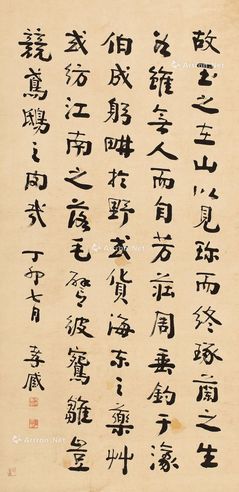 故玉之在山以見珍而終琢蘭之生
谷雖無人而自芳莊周垂釣于濠
伯成躬畊於野或貨海東之藥艸
或紡江南之落毛譬彼鴛雛豈
競鳶鴟之肉哉 丁卯七月 孝臧
Artron.Net